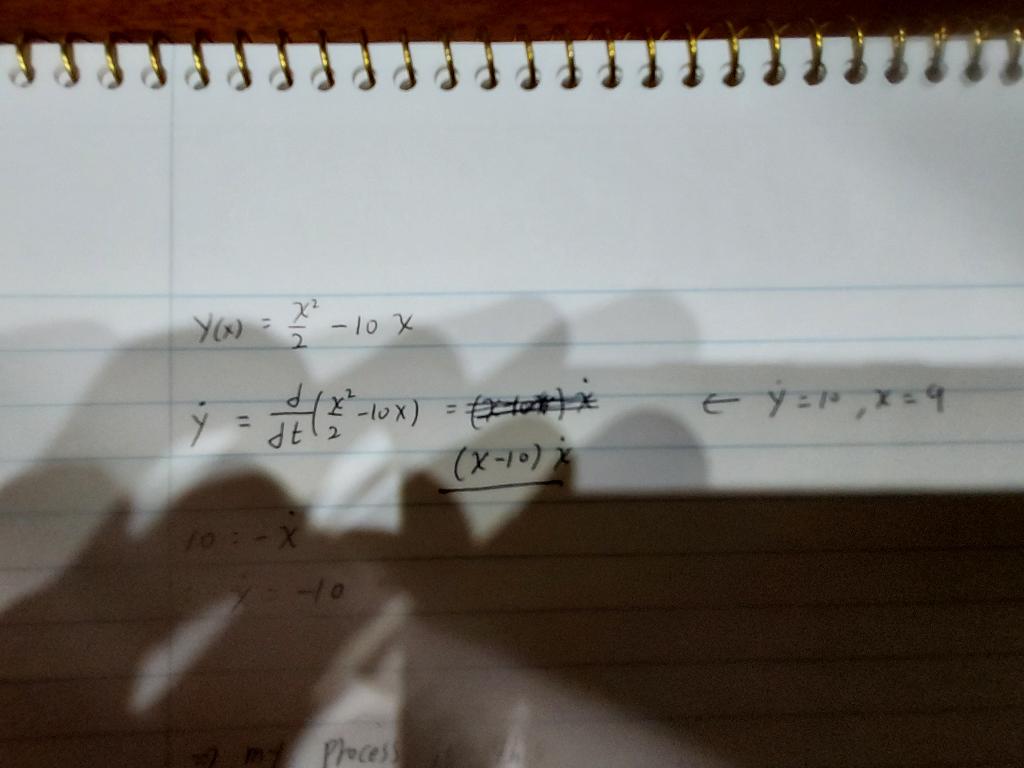 y(x) = x²/2 - 10 x
ẏ = d/dt(x²/2 - 10x) = ← ẏ = 10, x = 9
(x-10) ẋ
10 = -ẋ
ẋ = -10
⇒ my process